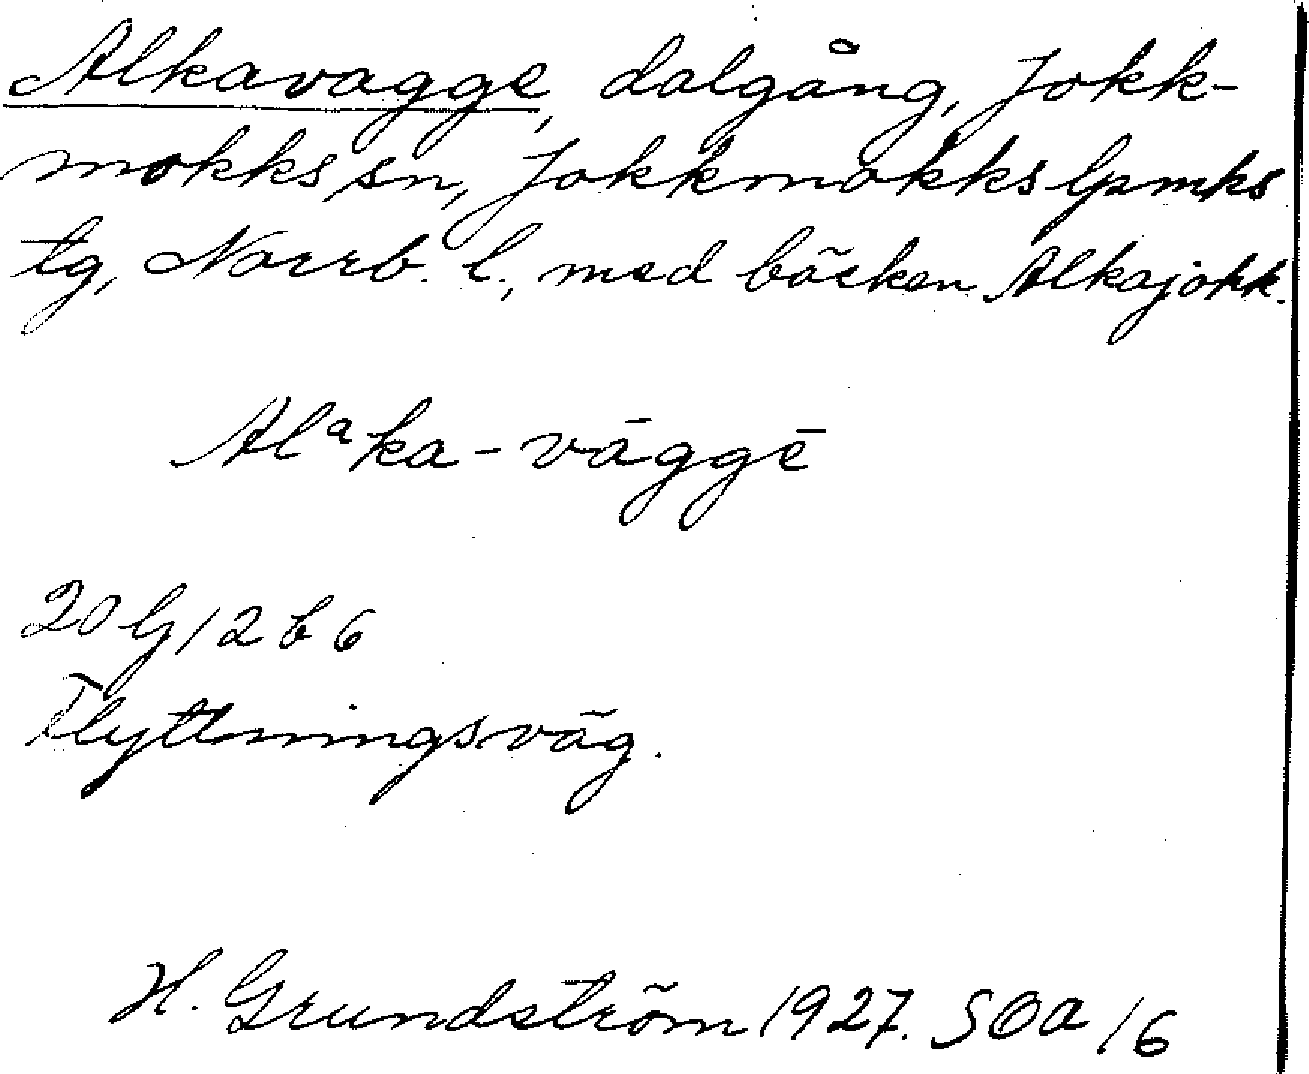 Alkavagge, dalgång, Jokk-
mokks sn, Jokkmokks lpmks
tg, Norrb. l., med bäcken Alkajokk.
Alᵃka-vāggē
20G/2b6
Flyttningsväg.
H. Grundström 1927. SOA/6